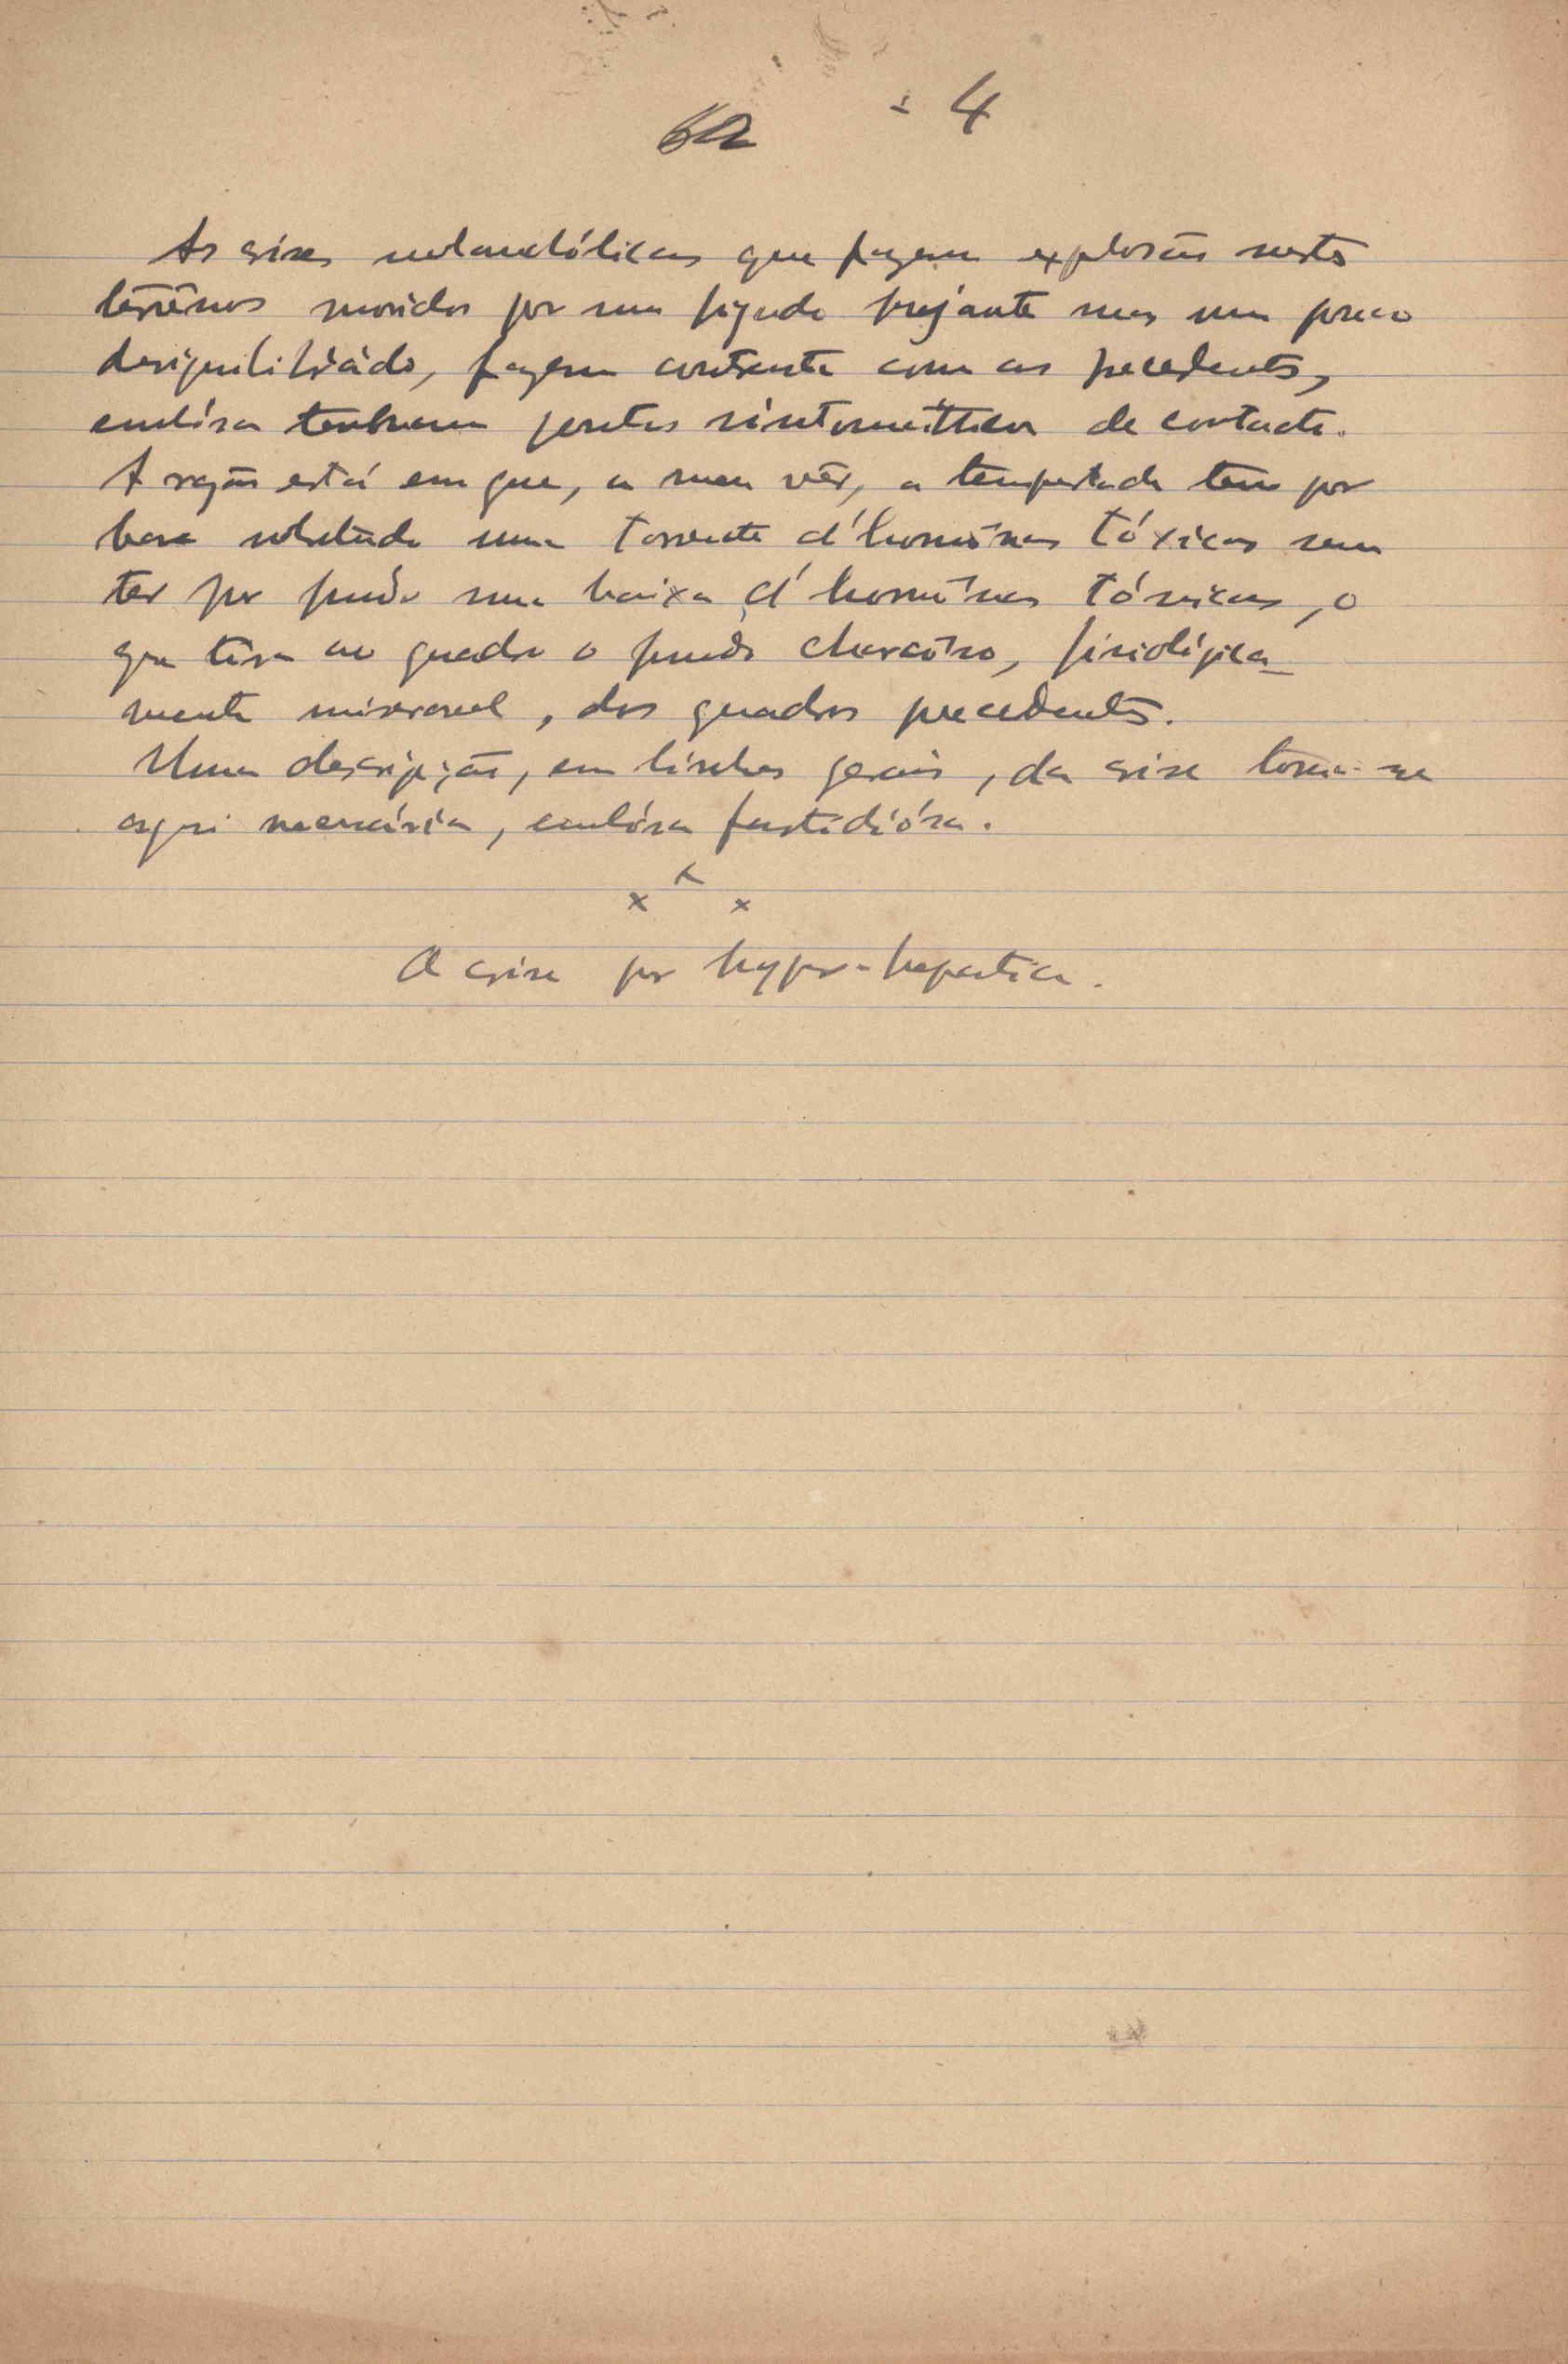 62 - 4
As crises melancólicas que fazem explosão nestes
terrênos movidos por um fígado pujante mas um pouco
desiquilibrado, fazem contraste com as precedentes,
embóra tenham pontos sintomátticos de contacto.
A razão está em que, a meu vêr, a tempestade tem por
base sobretudo uma torrente d'hormônas tóxicas sem
ter por fundo uma baixa d'hormônas tónicas, o
que tira ao quadro o fundo charcôso, fisiológica-
mente miseravel, dos quadros precedentes.
Uma descripção, em linhas gerais, da crise torna-se
aqui necessária, embóra fastidiósa.
x x x
A crise por hyper-hepatica.